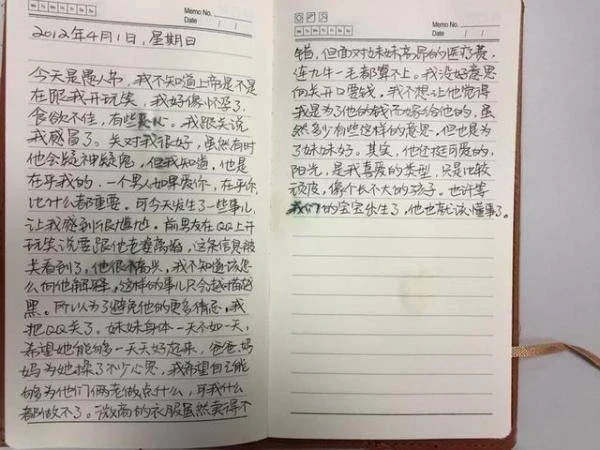 Memo No.
Date / /
2012年4月1日，星期日
今天是愚人节，我不知道上帝是不是
在跟我开玩笑，我好像怀孕了，
食欲不佳，有些恶心。我跟关说
我感冒了。关对我很好，虽然有时
他会疑神疑鬼，但我知道，他是
在乎我的，一个男人如果爱你，在乎你
比什么都重要。可今天发生了一些事儿，
让我感到很尴尬。前男友在QQ上开
玩笑说要跟他老婆离婚，这条信息被
关看到了，他很不高兴，我不知道该怎
么向他解释，这样的事儿只会越描越
黑。所以为了避免他的更多猜忌，我
把QQ关了。妹妹身体一天不如一天，
希望她能够一天天好起来，爸爸妈
妈为她操了不少心思，我希望自己能
够为他们俩老做点什么，可我什么
都做不了。微商的衣服虽然卖得不
Memo No.
Date / /
错，但面对妹妹高昂的医疗费，
连九牛一毛都算不上。我没好意思
向关开口要钱，我不想让他觉得
我是为了他的钱而嫁给他的，虽
然多少有些这样的意思，但也是为
了妹妹好。其实，他还挺可爱的，
阳光，是我喜爱的类型，只是比较
顽皮，像个长不大的孩子。也许等
我们的宝宝出生了，他也就该懂事了。